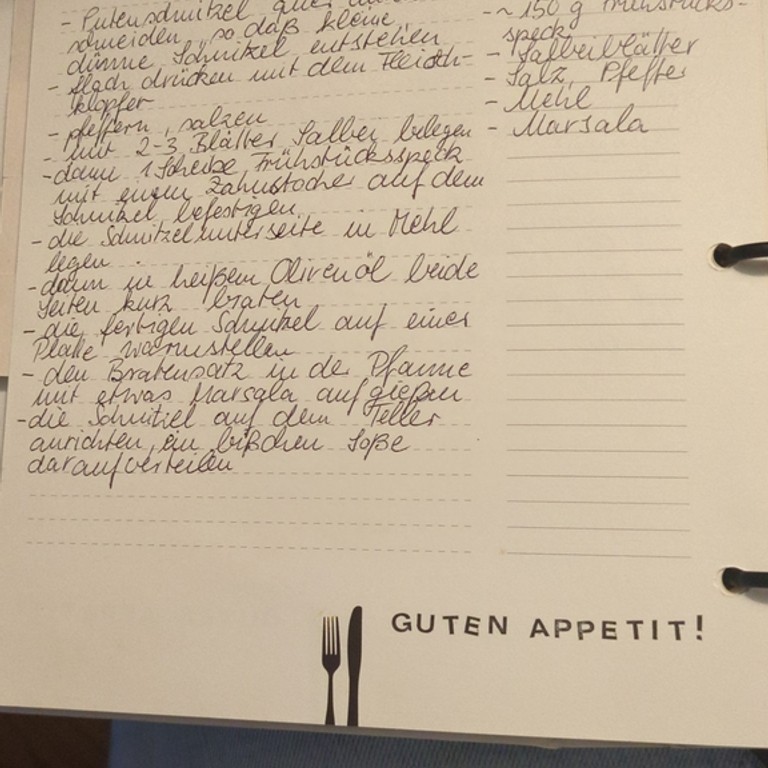 - Putenschnitzel quer
schneiden, so daß kleine
dünne Schnitzel entstehen
- flach drücken mit dem Fleisch-
klopfer
- pfeffern, salzen
- mit 2-3 Blätter Salbei belegen
- dann 1 Scheibe Frühstücksspeck
mit einem Zahnstocher auf dem
Schnitzel befestigen
- die Schnitzelunterseite in Mehl
legen
- dann in heißem Olivenöl beide
Seiten kurz braten
- die fertigen Schnitzel auf einer
Platte warmstellen
- den Bratensatz in der Pfanne
mit etwas Marsala aufgießen
- die Schnitzel auf dem Teller
anrichten, ein bißchen Soße
darauf verteilen
- ~ 150 g Frühstücks-
speck
- Salbeiblätter
- Salz, Pfeffer
- Mehl
- Marsala
GUTEN APPETIT!